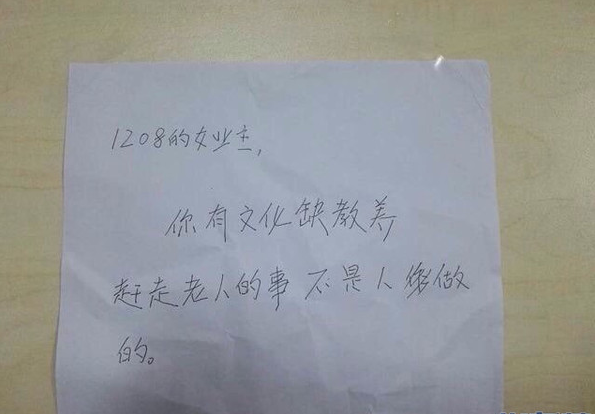 1208的女业主,
你有文化缺教养
赶走老人的事不是人能做
的。